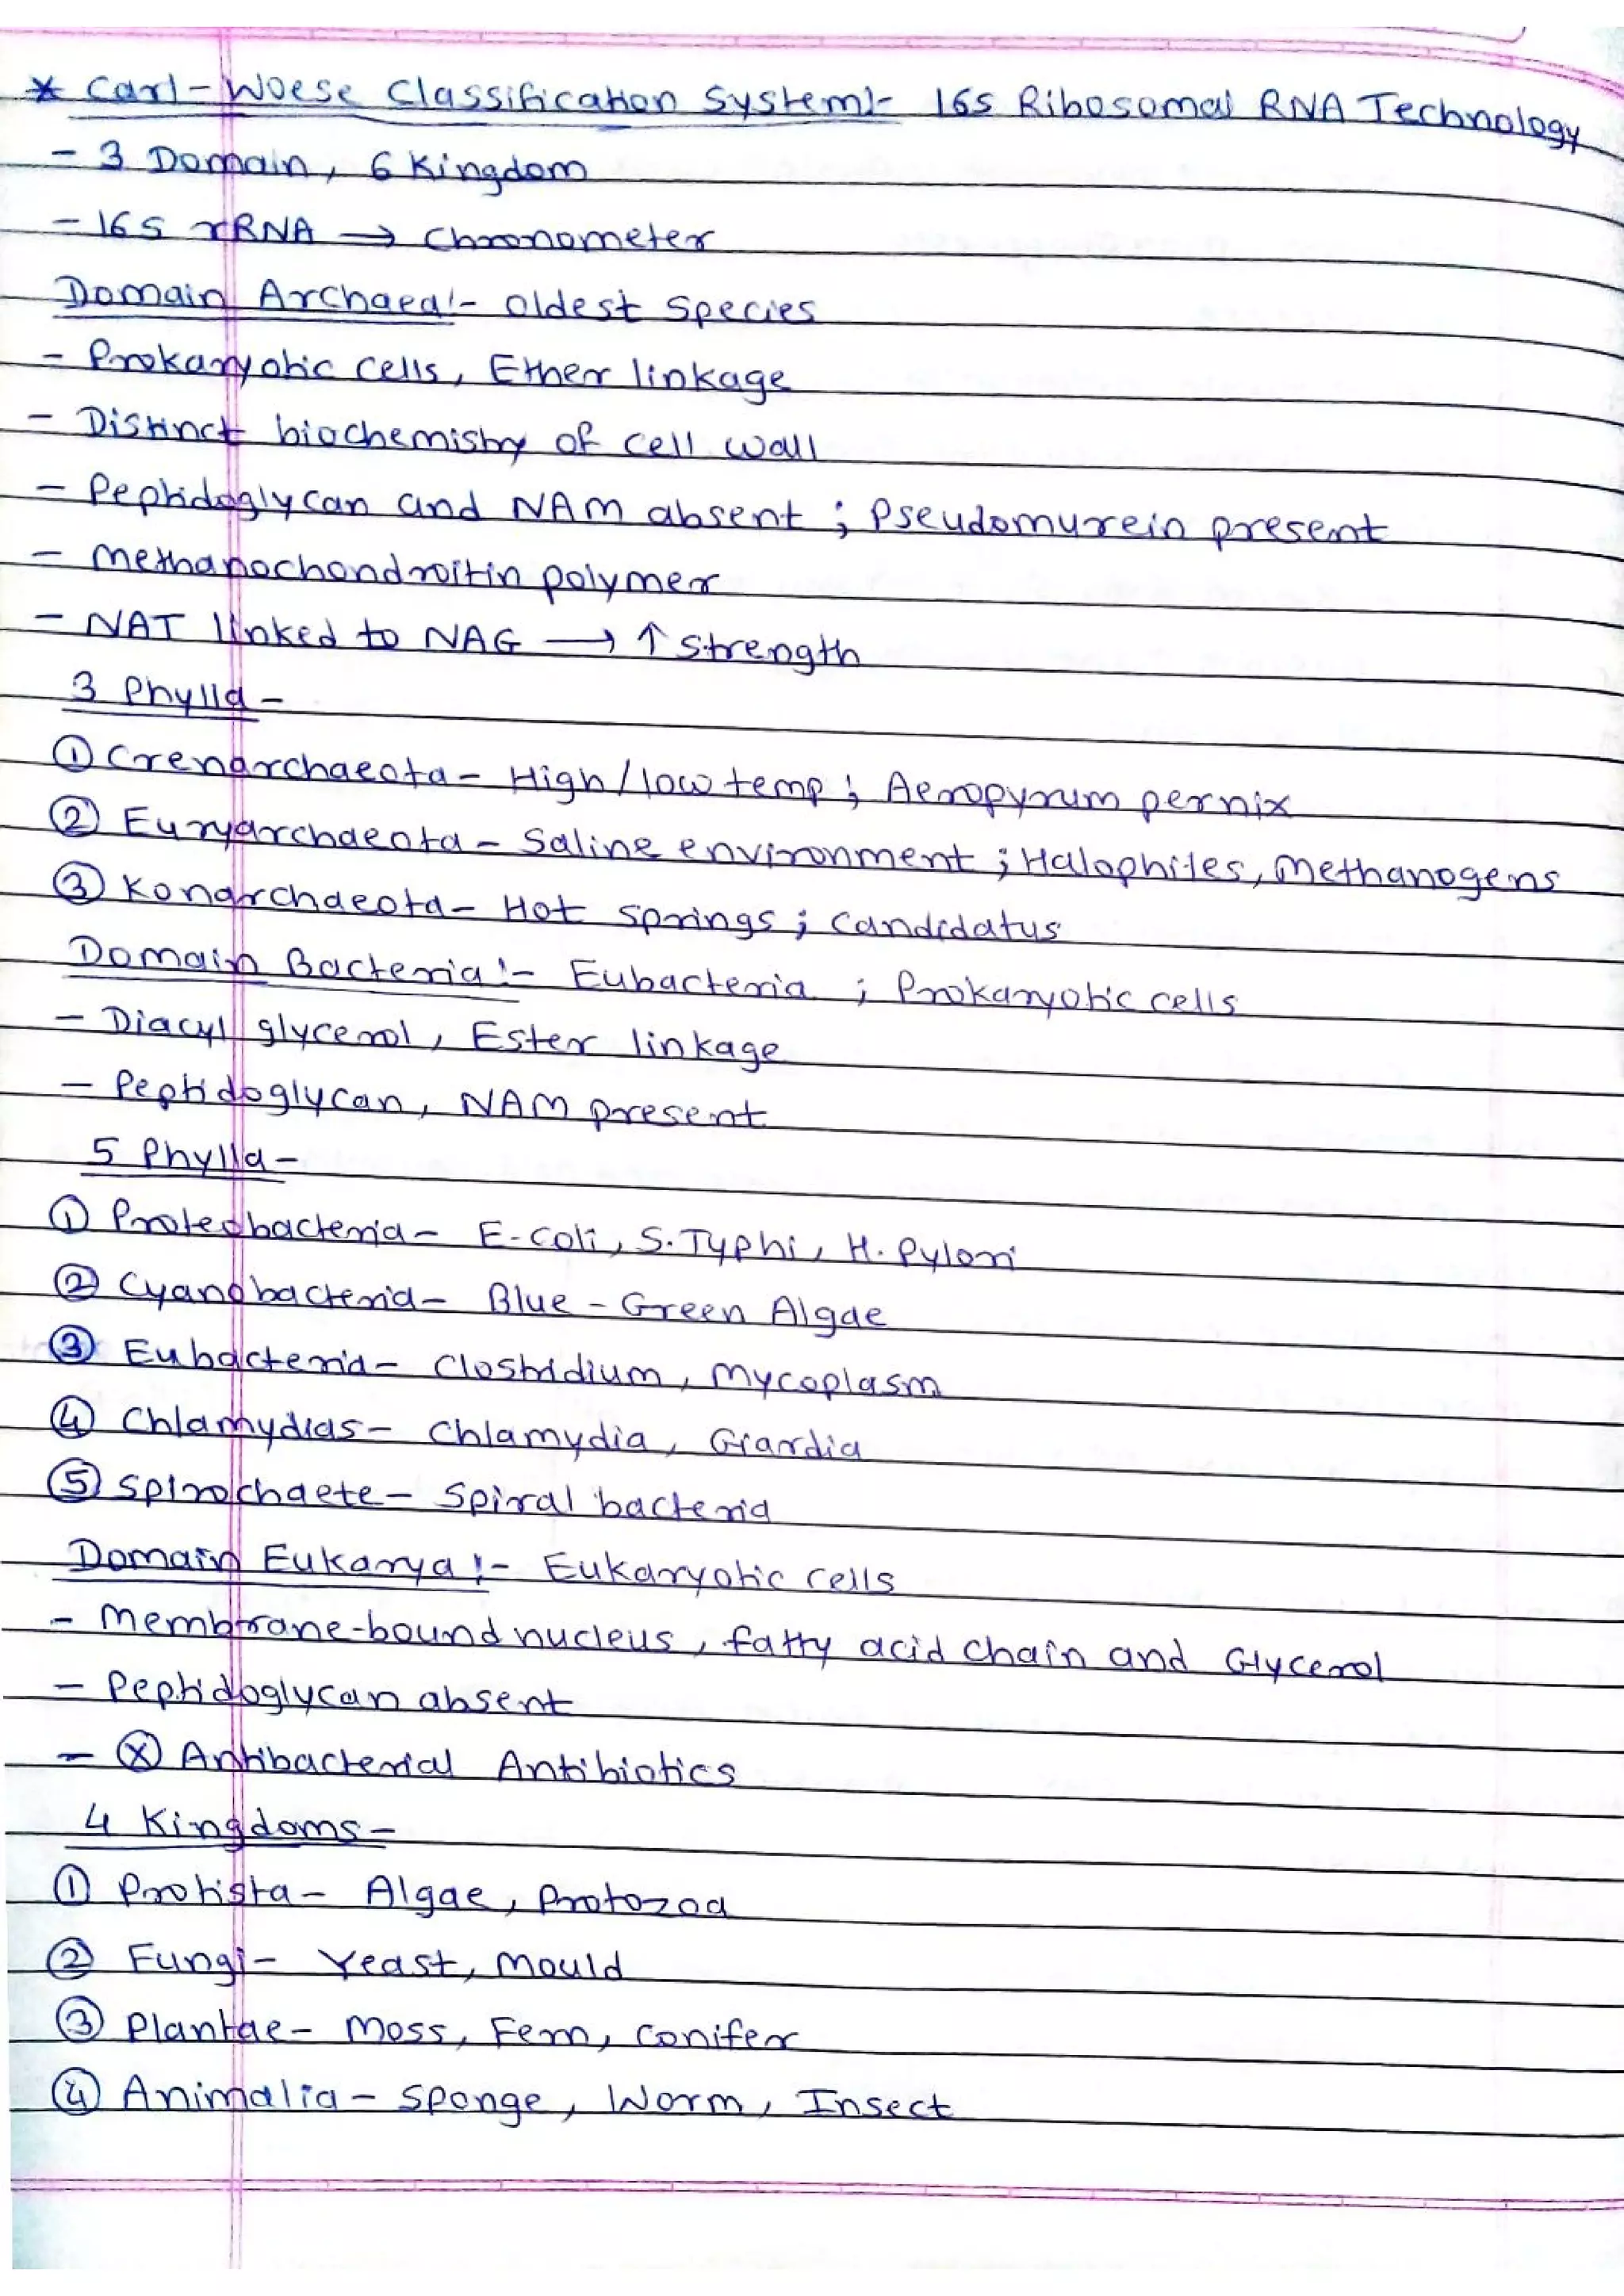 * Carl-Woese Classification System:- 16s Ribosomal RNA Technology
- 3 Domain, 6 Kingdom
- 16S rRNA → Chronometer
Domain Archaea:- Oldest Species
- Prokaryotic cells, Ether linkage
- Distinct biochemistry of cell wall
- Peptidoglycan and NAM absent ; Pseudomurein present
- Methanochondroitin polymer
- NAT linked to NAG → ↑ Strength
3 Phylla -
① Crenarchaeota - High/low temp ; Aeropyrum pernix
② Euryarchaeota - Saline environment ; Halophiles, Methanogens
③ Konarchaeota - Hot springs ; Candidatus
Domain Bacteria:- Eubacteria ; Prokaryotic cells
- Diacyl glycerol, Ester linkage
- Peptidoglycan, NAM present
5 Phylla -
① Proteobacteria - E-coli, S.Typhi, H.Pylori
② Cyanobacteria - Blue-Green Algae
③ Eubacteria - Clostridium, Mycoplasm
④ Chlamydias - Chlamydia, Giardia
⑤ Spirochaete - Spiral bacteria
Domain Eukarya:- Eukaryotic cells
- Membrane-bound nucleus, fatty acid chain and Glycerol
- Peptidoglycan absent
- ⓧ Antibacterial Antibiotics
4 Kingdoms -
① Protista - Algae, Protozoa
② Fungi - Yeast, Mould
③ Plantae - Moss, Fern, Conifer
④ Animalia - Sponge, Worm, Insect